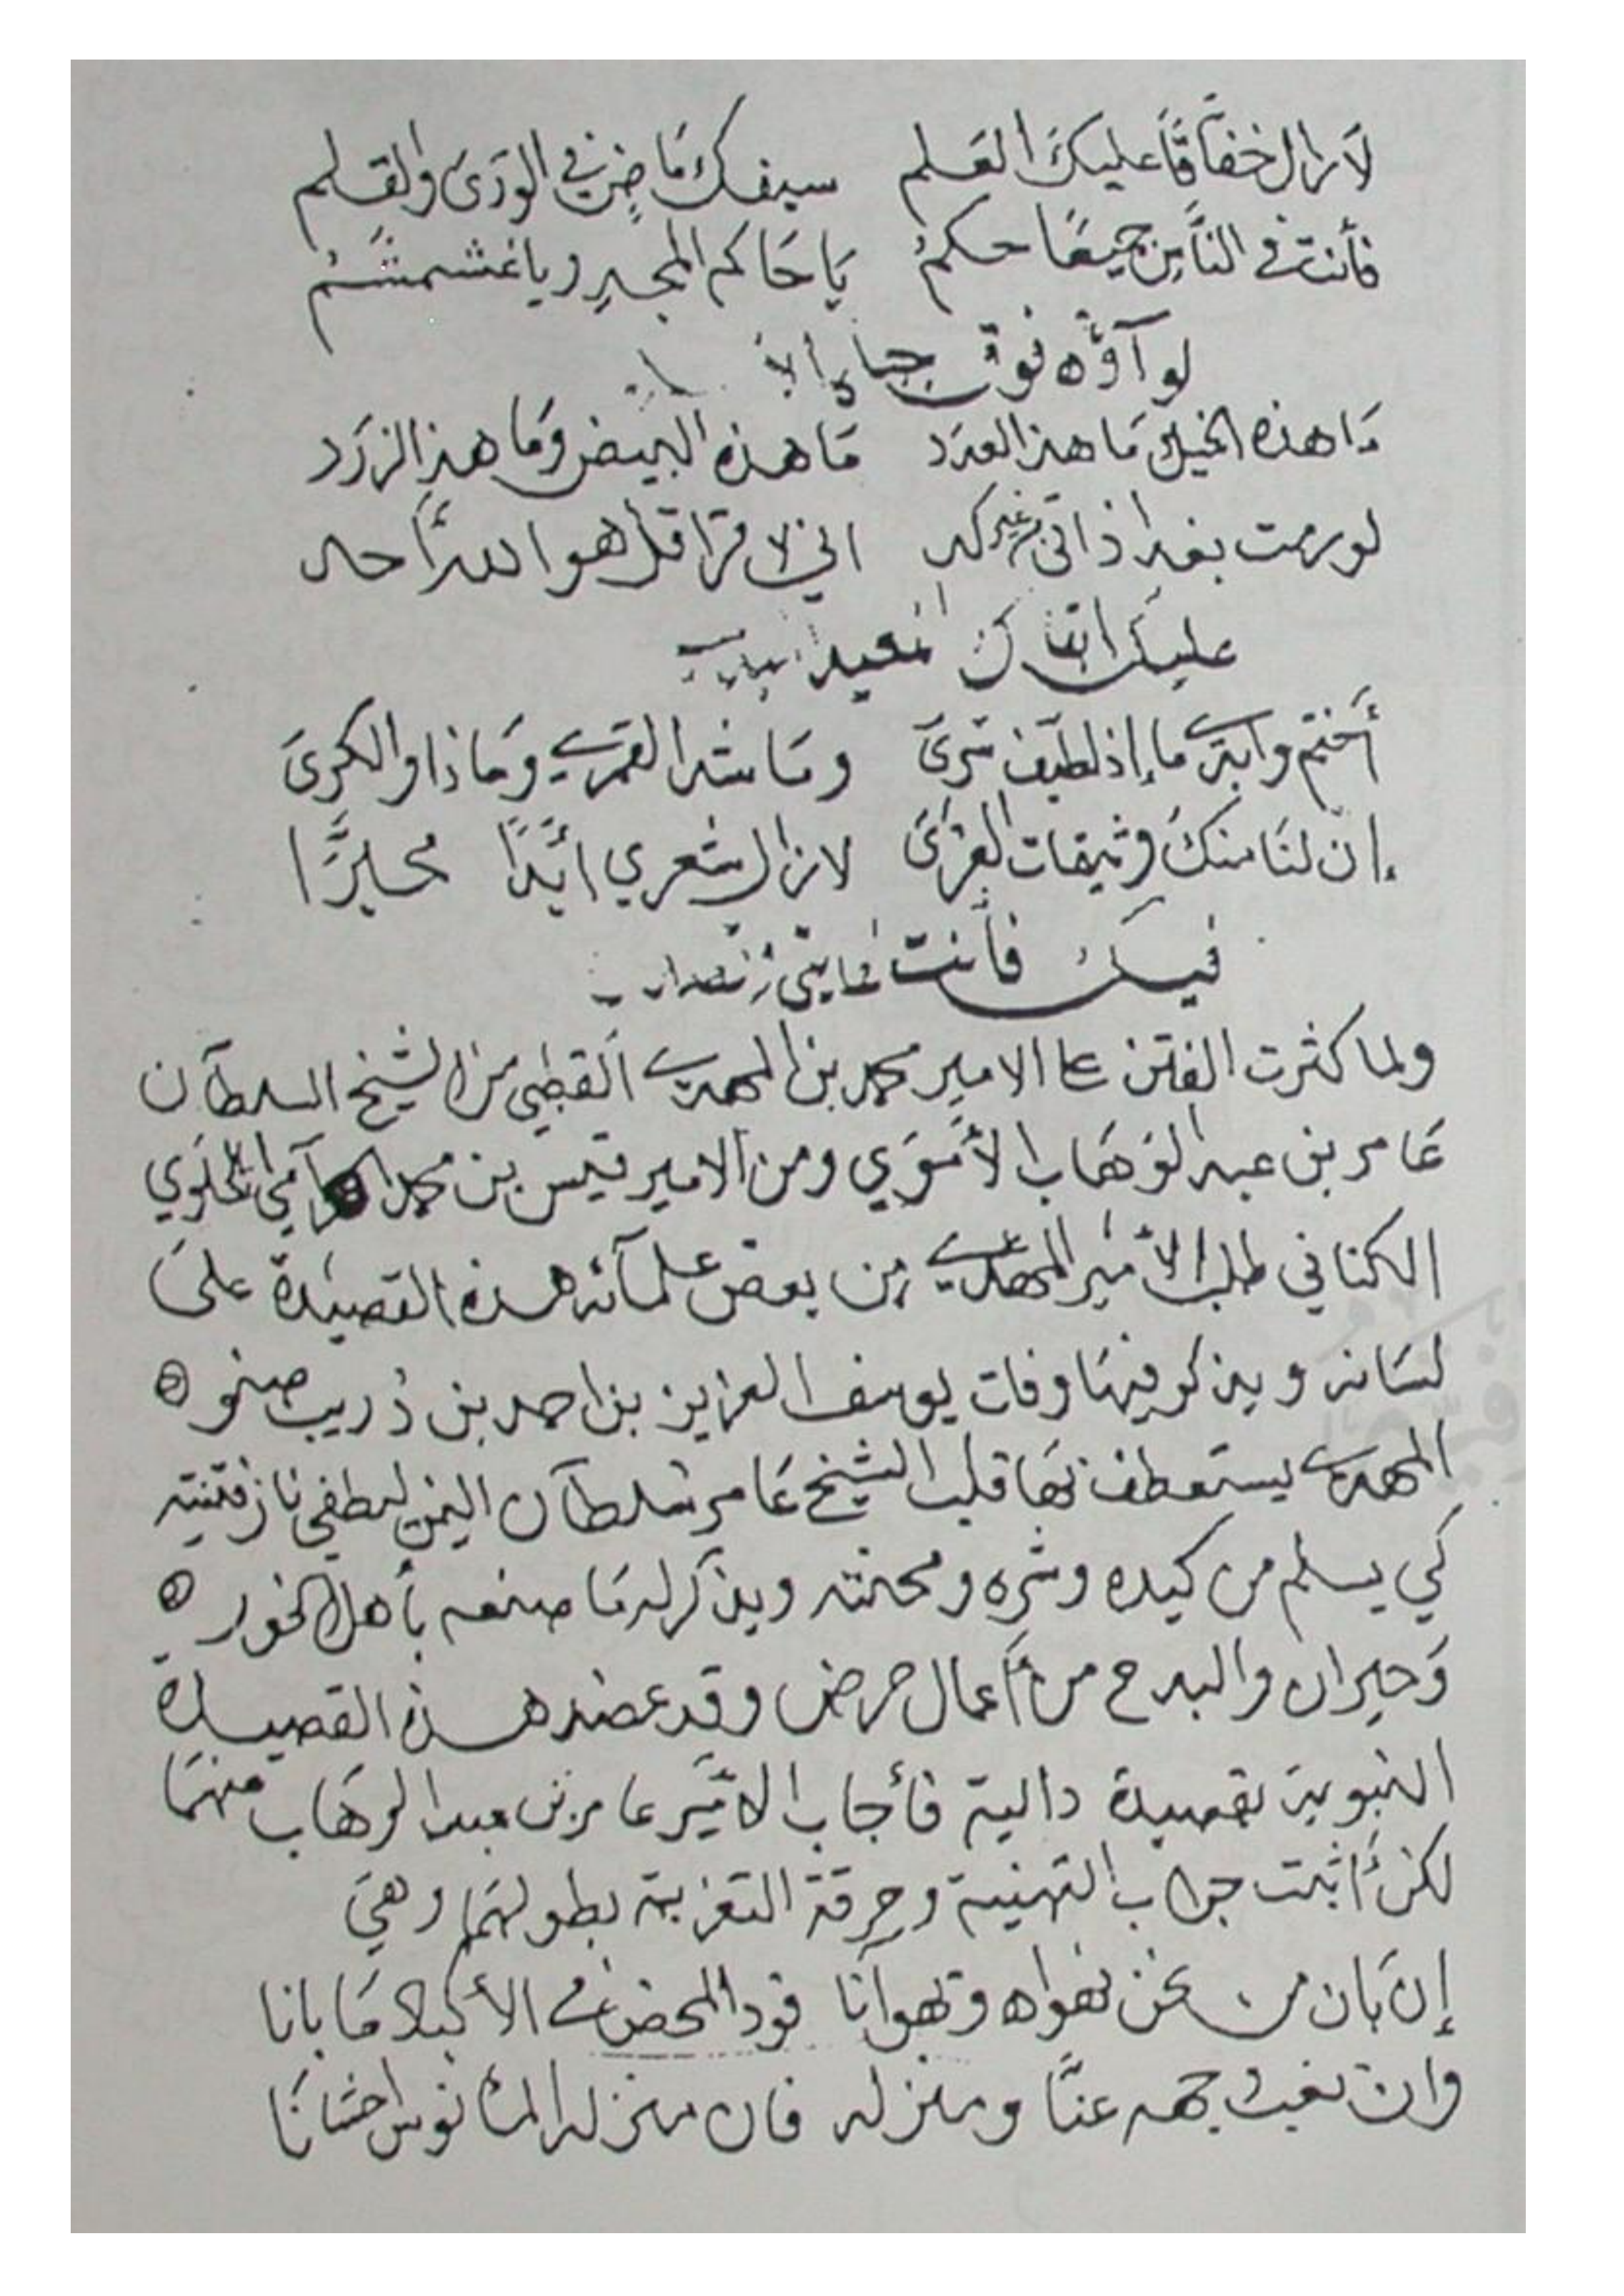 لازال خفاقًا عليك العلم سيفك ماضٍ في الورى والقلم
فأنت في الناس جميعًا حكمُ يا حاكم المجد ويا غشمشمُ
لوآؤه فوق
ما هذه الخيل ما هذا العدد ما هذه البيض وما هذا الزرد
لو رمت بغداذ اتى غير كد اني لا قرا قل هو الله احد
عليك
أختم وابتدي ما إذا لطيف سرى وما شدا القمري وما ذاد الكرى
إن لنا منك وثيقات العرى لازال شعري ابدًا محبرًا
فيك فأنت غايتي
ولما كثرت الفتن على الامير محمد بن المهدي القطبي من الشيخ السلطان
عامر بن عبد الوهاب الأموي ومن الامير قيس بن محمد الحرامي الحلوي
الكناني طلب الأمير المهدي من بعض علمآئه هذه القصيدة على
لسانه ويذكر فيها وفات يوسف العزيز بن احمد بن دريب صنو
المهدي يستعطف بها قلب الشيخ عامر سلطان اليمن ليطفي نار فتنته
كي يسلم من كيده وشره ومحنته ويذكر له ما صنعه بأهل الخور
وحيران والبدح من أعمال حرض وقد عضد هذه القصيدة
النبوية بقصيدة دالية فأجاب الأمير عامر بن عبد الوهاب منهما
لكن أثبت جواب التهنية وحرقة التعزية بطولهما وهي
إن بان من نحن نهواه ويهوانا فود المحض في الأكباد ما بانا
وان تغيب وجهه عنا ومنزله فان منزله المأنوس احشانا